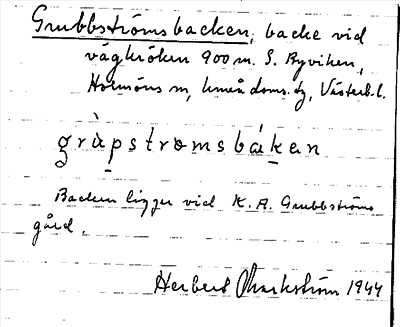 Grubbströmsbacken, backe vid
vägkröken 900 m. S. Ryviken,
Holmöns sn, Umeå doms. tg, Västerb. l.
grùpstromsbákan
Backen ligger vid K. A. Grubbströms
gård.
Herbert Markström 1944